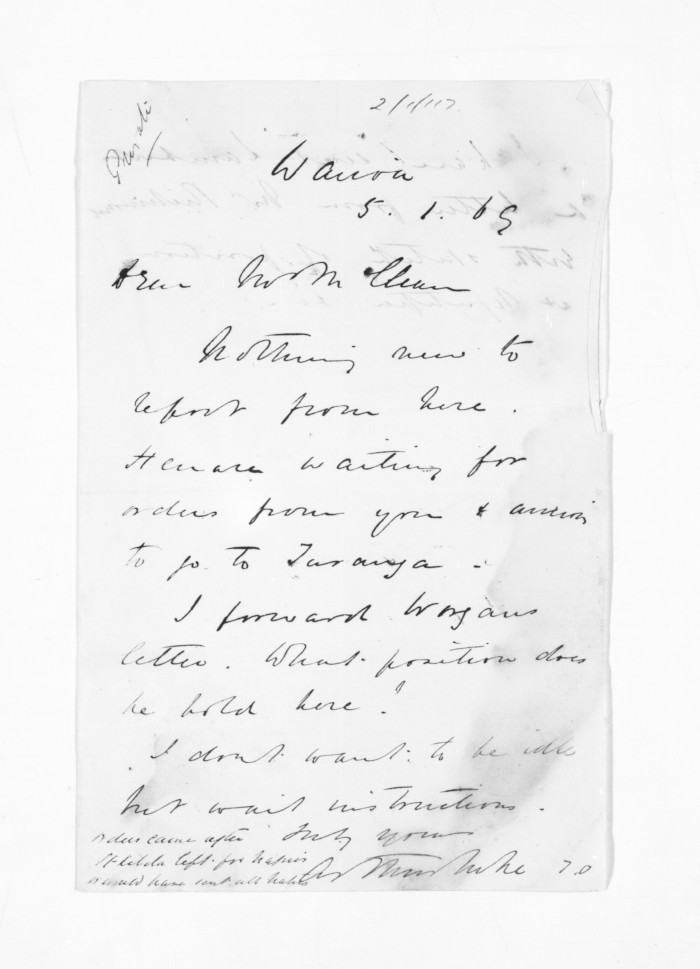 Private
Wairoa
5. 1. 69
Dear Mr McClean
Nothing new to
report from here.
waiting for
orders from you & anxious
to go to Turanga -
I forward Worgans
letter. What position does
he hold here?
I dont want to be idle
but wait instructions.
Truly yours
orders came after
left for
would have sent all